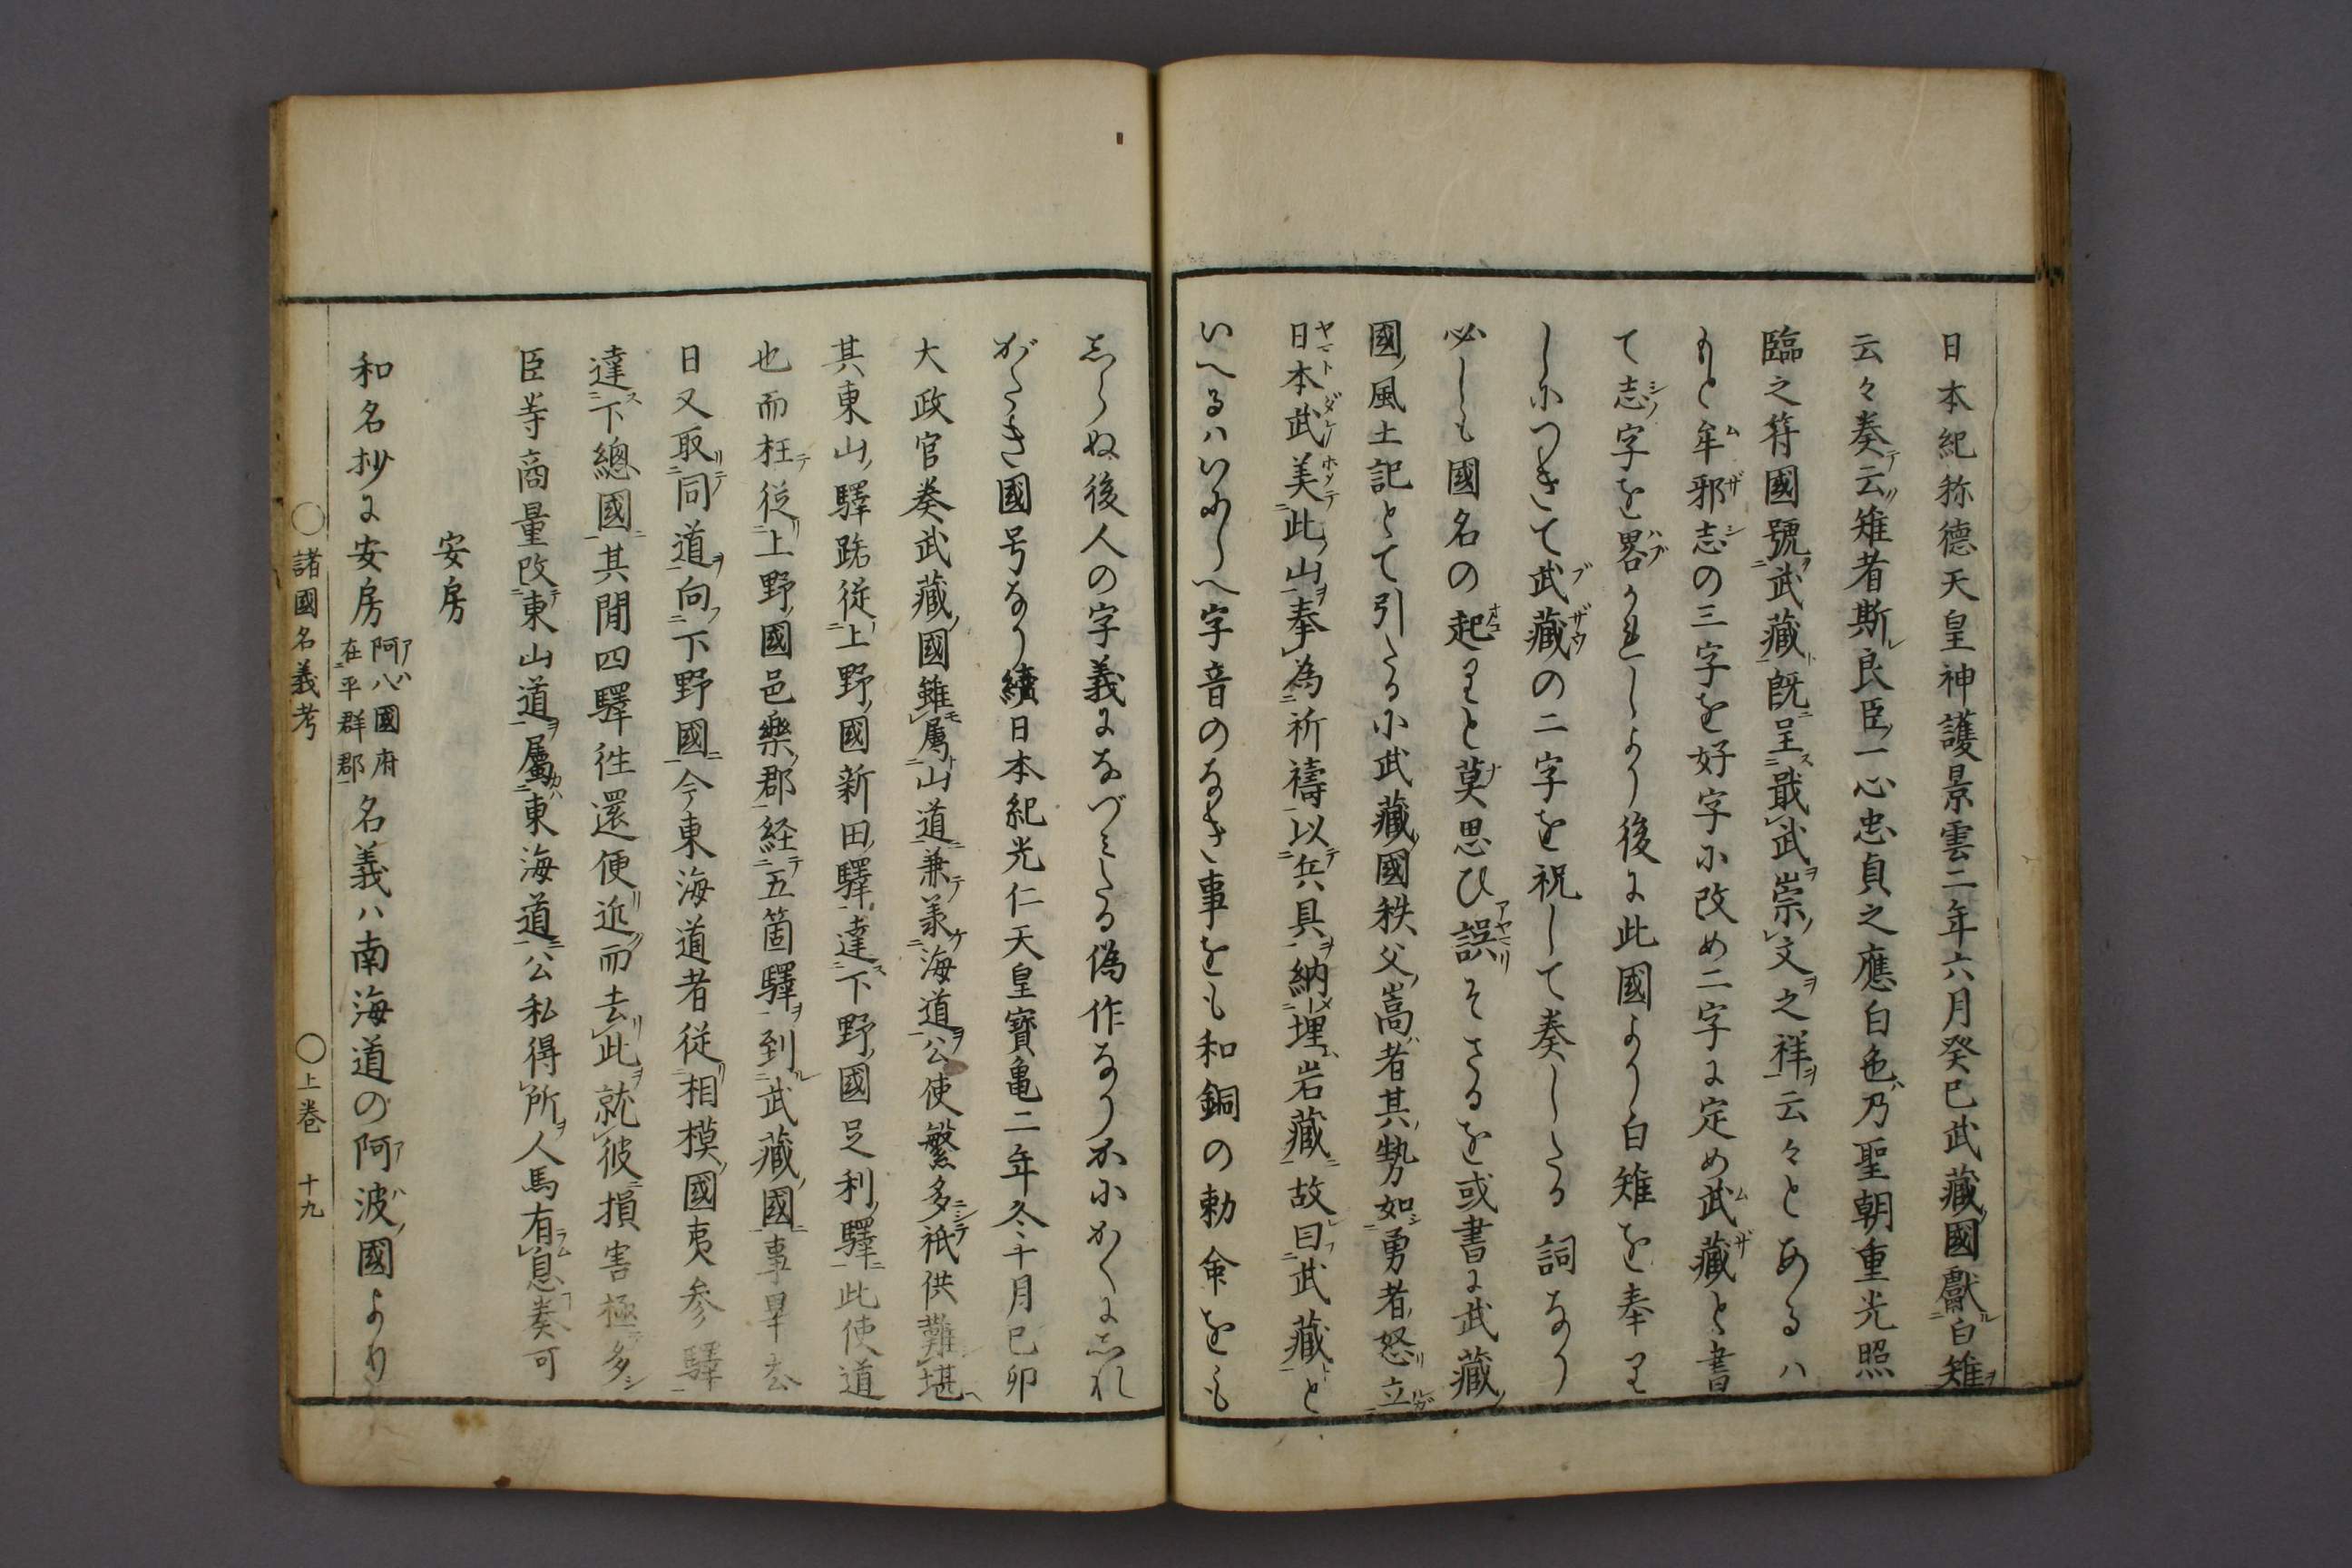 日本紀称德天皇神護景雲二年六月癸巳武藏國獻白雉
云々奏云雉者斯良臣一心忠貞之應白色乃聖朝重光照
臨之符國號武藏既呈戢武崇文之祥云々とあるハ
もと牟邪志の三字を好字小改め二字に定め武藏と書
て志字を畧かれしより後に此國より白雉を奉里
し小つきて武藏の二字を祝して奏したる詞なり
必しも國名の起里と莫思ひ誤そさるを或書に武藏
國風土記とて引たる小武藏國秩父嵩者其勢如勇者怒立
日本武美此山奉為祈禱以兵具納埋岩藏故曰武藏と
いへるハいにしへ字音のなき事をも和銅の勅命をも
志らぬ後人の字義になづミたる偽作なりか小かくに志れ
がたき國号なり續日本紀光仁天皇寶亀二年冬十月己卯
大政官奏武藏國雖属山道兼羕海道公使繁多祇供難堪
其東山驛路從上野國新田驛達下野國足利驛此使道
也而枉從上野國邑樂郡経五箇驛到武藏國事畢去
日又取同道向下野國今東海道者從相模國夷参驛
達下總國其間四驛徃還便近而去此就彼損害極多
臣等商量改東山道屬東海道公私得所人馬有息奏可
安房
和名抄に安房阿八國府在平群郡名義ハ南海道の阿波國より
諸國名義考 上卷 十九